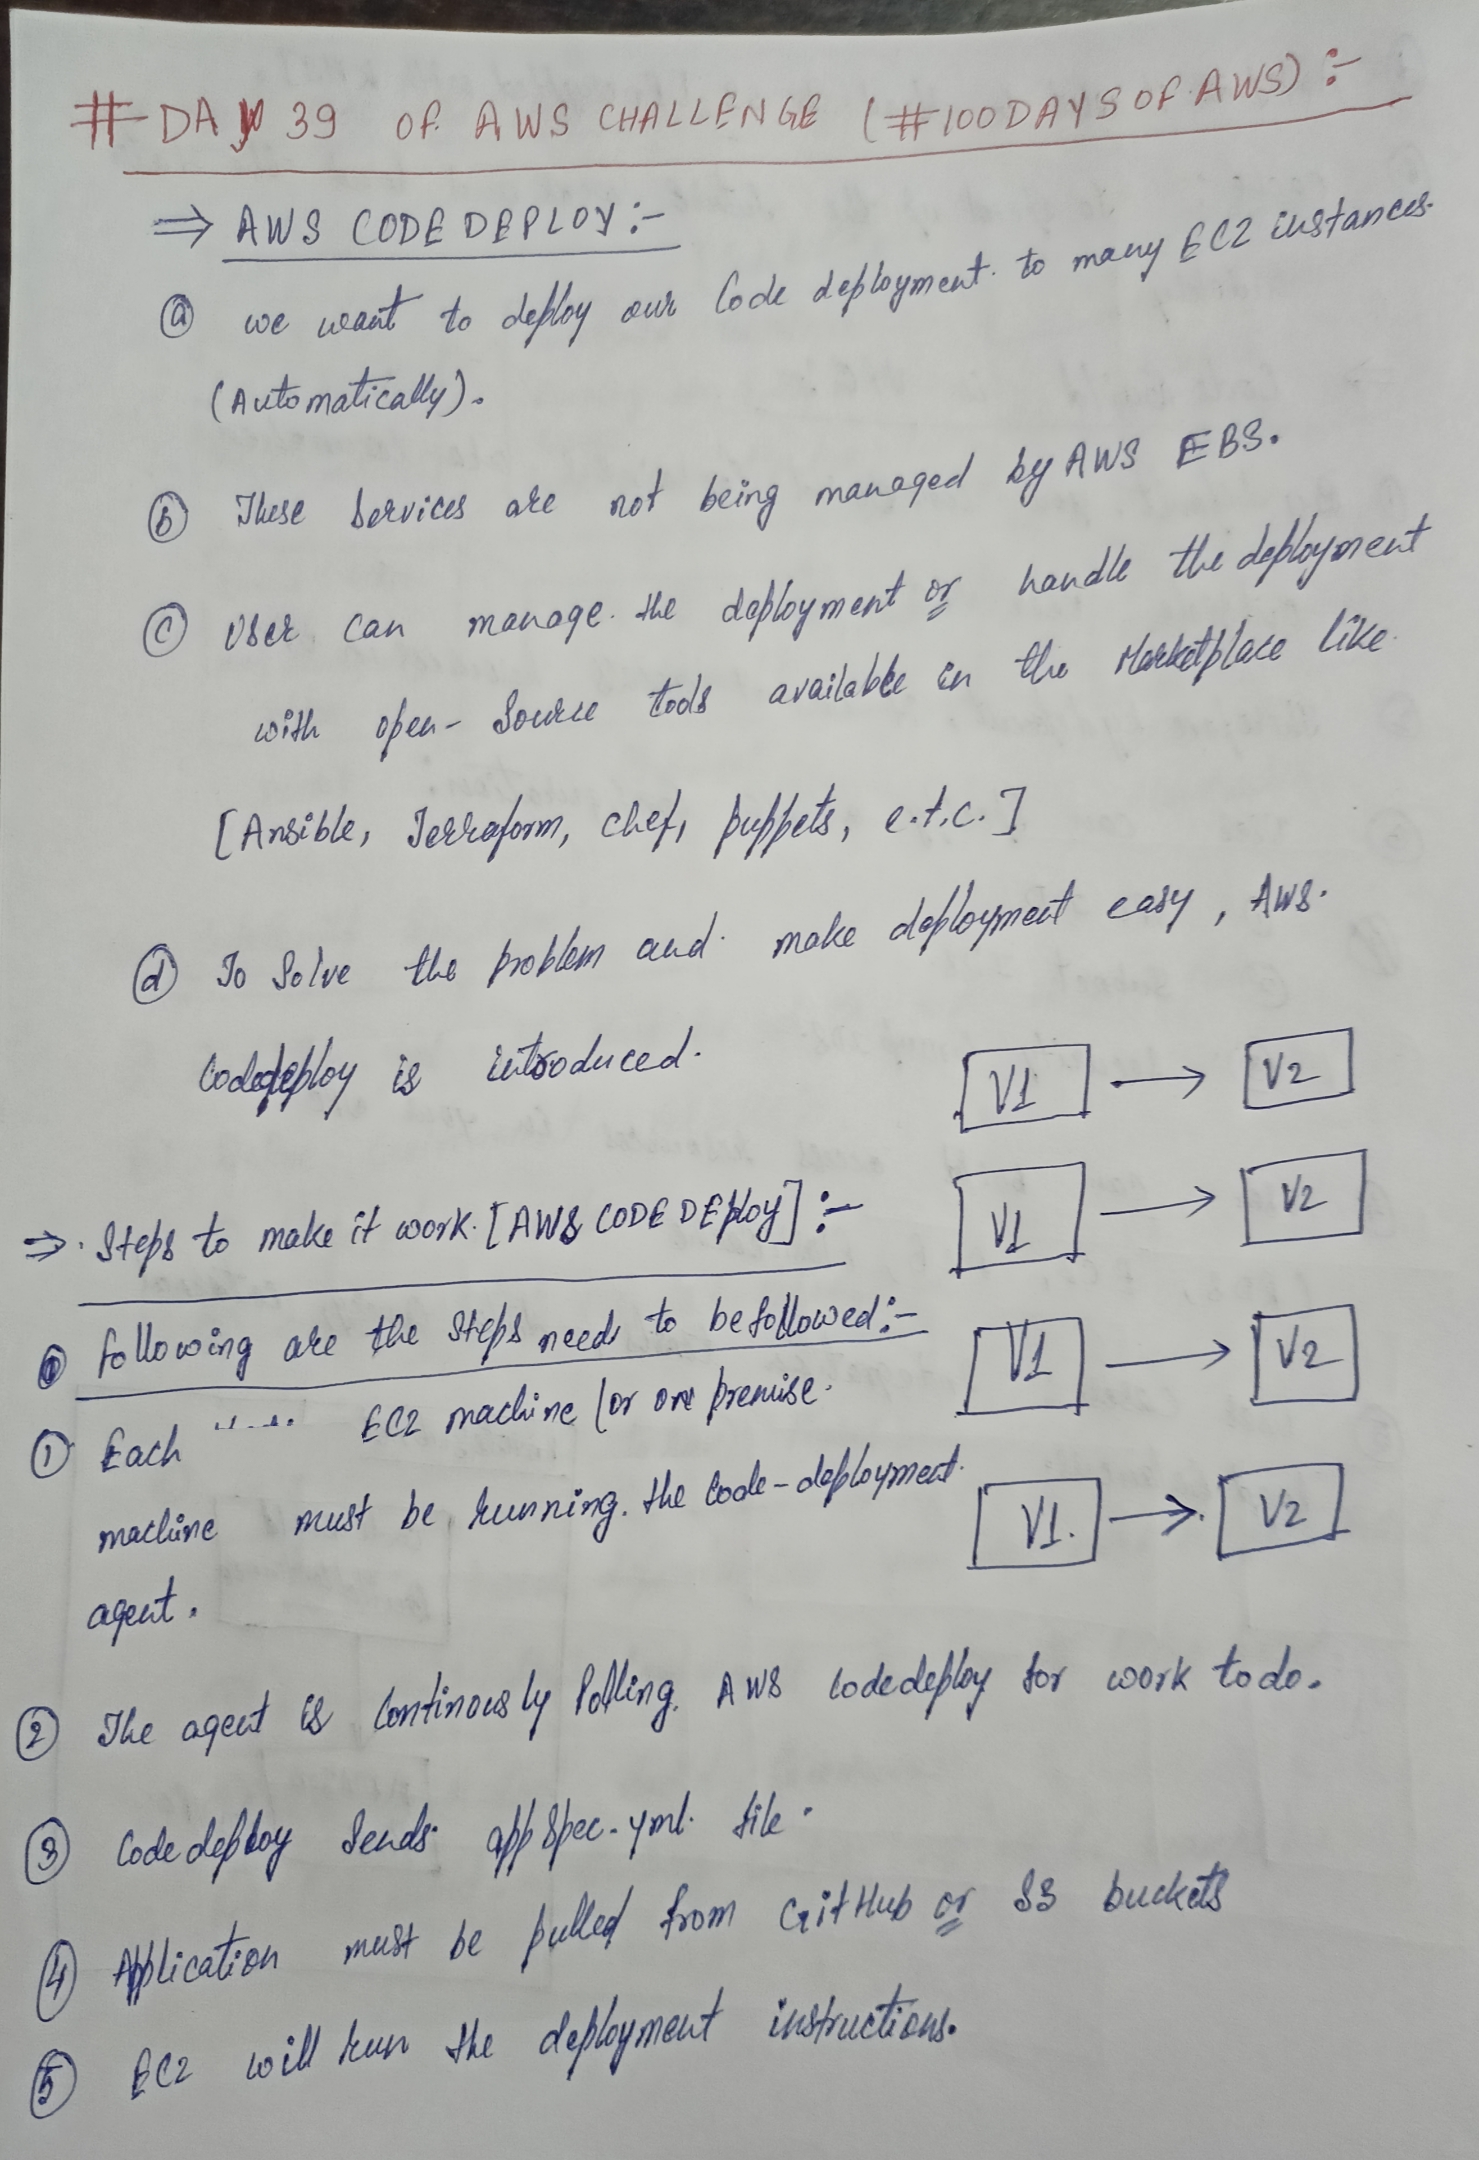 # DAY 39 OF AWS CHALLENGE (#100DAYSOFAWS) :-
⇒ AWS CODEDEPLOY :-
ⓐ we want to deploy our Code deployment to many EC2 instances.
(Automatically).
ⓑ These Services are not being managed by AWS EBS.
ⓒ User can manage the deployment or handle the deployment
with open-Source tools available in the Marketplace like
[Ansible, Terraform, chef, puppets, e.t.c.]
ⓓ To Solve the problem and make deployment easy, AWS.
Codedeploy is introduced.
V1 → V2
V1 → V2
⇒ Steps to make it work [AWS CODE DEploy] :-
following are the steps needs to be followed :-
V1 → V2
① Each EC2 machine (or on premise
machine must be running the Code-deployment
V1. → V2
agent.
② The agent is Continously Polling AWS Codedeploy for work to do.
③ Code deploy Sends appspec.yml file.
④ Application must be pulled from GitHub or S3 buckets
⑤ EC2 will run the deployment instructions.